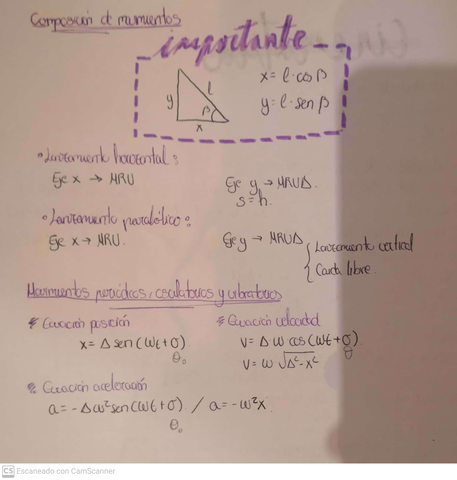 Composición de movimientos
importante
x = l·cos β
y = l·sen β
y l β x
• Lanzamiento horizontal:
Eje x → MRU
Eje y → MRUA.
s = h.
• Lanzamiento parabólico:
Eje x → MRU.
Eje y → MRUA { Lanzamiento vertical
Caída libre.
Movimientos periódicos, oscilatorios y vibratorios
* Ecuación posición
x = A sen(ωt+σ)
θ₀
* Ecuación velocidad
v = A ω cos(ωt+σ)
v = ω √A²-x²
* Ecuación aceleración
a = -Aω² sen(ωt+σ) / a = -ω²x.
θ₀
CS Escaneado con CamScanner